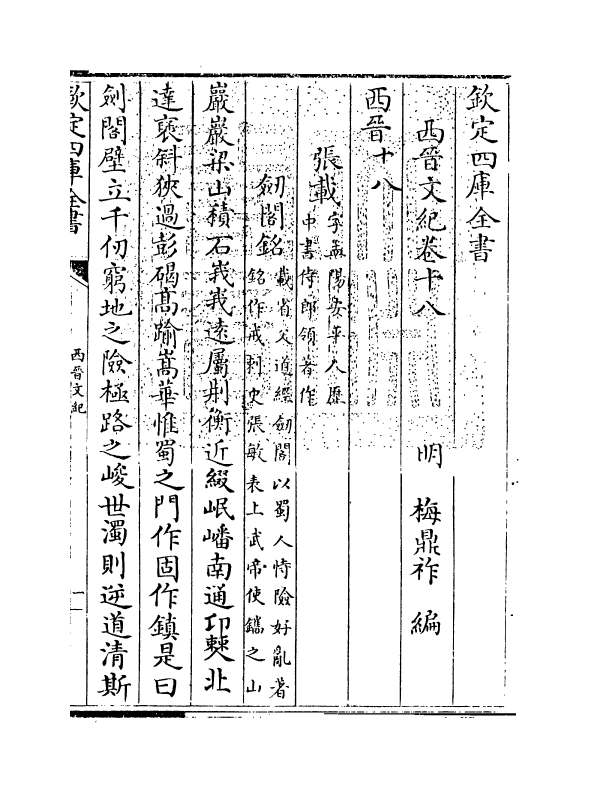 欽定四庫全書
西晉文紀卷十八
明 梅鼎祚 編
西晉十八
張載 字孟陽安平人歴
中書侍郎領著作
劒閣銘 載省父道經劒閣以蜀人恃險好亂著
銘作戒刺史張敏表上武帝使鐫之山
巖巖梁山積石峩峩遠屬荆衡近綴岷嶓南通卭僰北
達褒斜狹過彭碣髙踰嵩華惟蜀之門作固作鎮是曰
劍閣壁立千仞窮地之險極路之峻世濁則逆道清斯
欽定四庫全書
西晉文紀
一